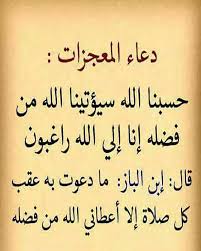 دعاء المعجزات :
حسبنا الله سيؤتينا الله من
فضله إنا إلي الله راغبون
قال: إبن الباز: ما دعوت به عقب
كل صلاة إلا أعطاني الله من فضله